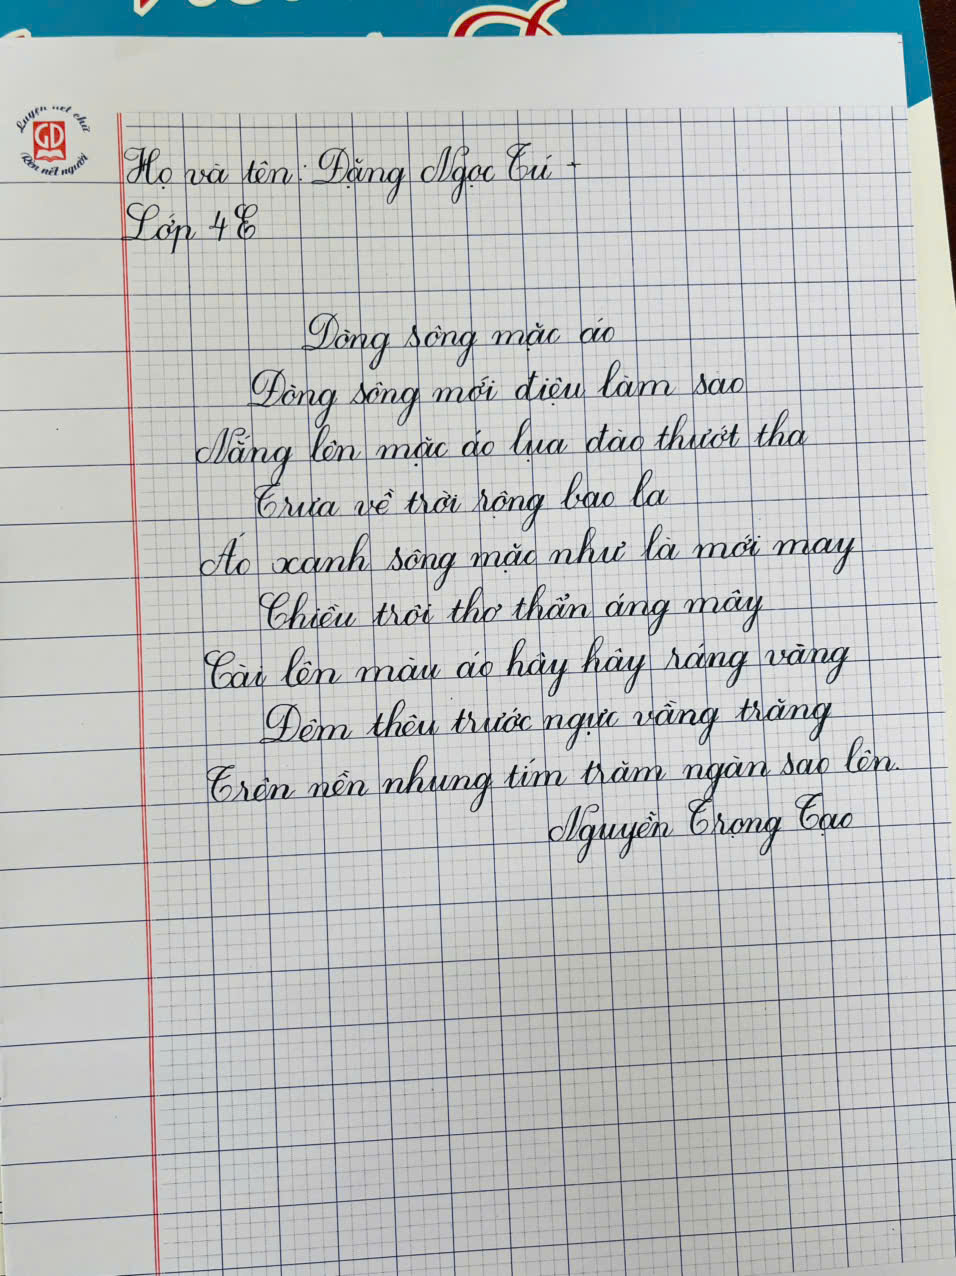 Luyện nét chữ
GD
Rèn nét người
Họ và tên: Đặng Ngọc Tú
Lớp 4E
Dòng sông mặc áo
Dòng sông mới điệu làm sao
Nắng lên mặc áo lụa đào thướt tha
Trưa về trời rộng bao la
Áo xanh sông mặc như là mới may
Chiều trôi thơ thẩn áng mây
Cài lên màu áo hây hây ráng vàng
Đêm thêu trước ngực vầng trăng
Trên nền nhung tím trăm ngàn sao lên.
Nguyễn Trọng Tạo